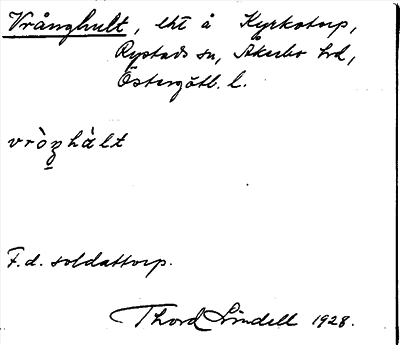 Vrånghult, lht å Kyrkotorp,
Rystads sn, Åkerbo hd,
Östergötl. l.
vrò̱ŋhàlt
F.d. soldattorp.
Thord Lindell 1928.